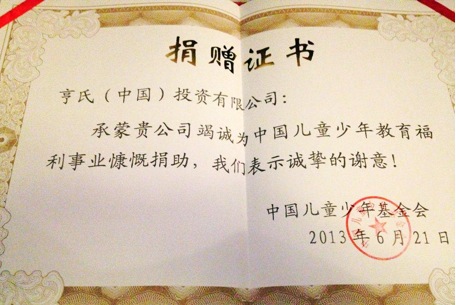 捐赠证书
亨氏（中国）投资有限公司：
承蒙贵公司竭诚为中国儿童少年教育福
利事业慷慨捐助，我们表示诚挚的谢意！
中国儿童少年基金会
2013年6月21日